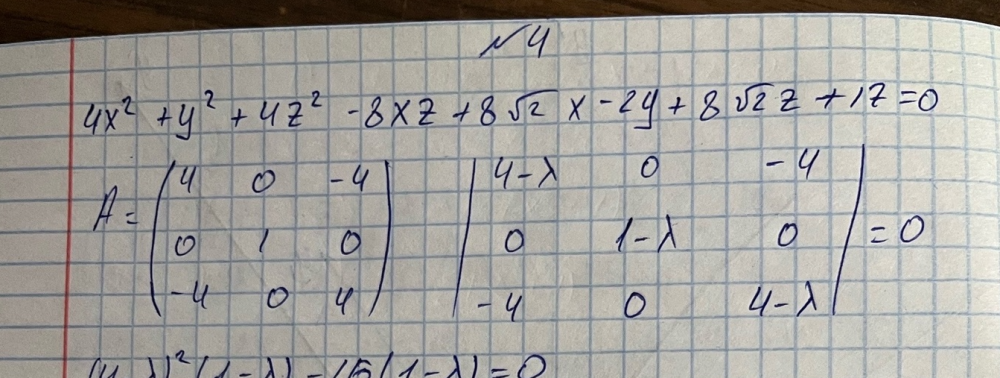 №4
4x² + y² + 4z² - 8xz + 8√2 x - 2y + 8√2 z + 17 = 0
A = (4 0 -4; 0 1 0; -4 0 4) |4-λ 0 -4; 0 1-λ 0; -4 0 4-λ| = 0
(4-λ)²(1-λ) - 16(1-λ) = 0